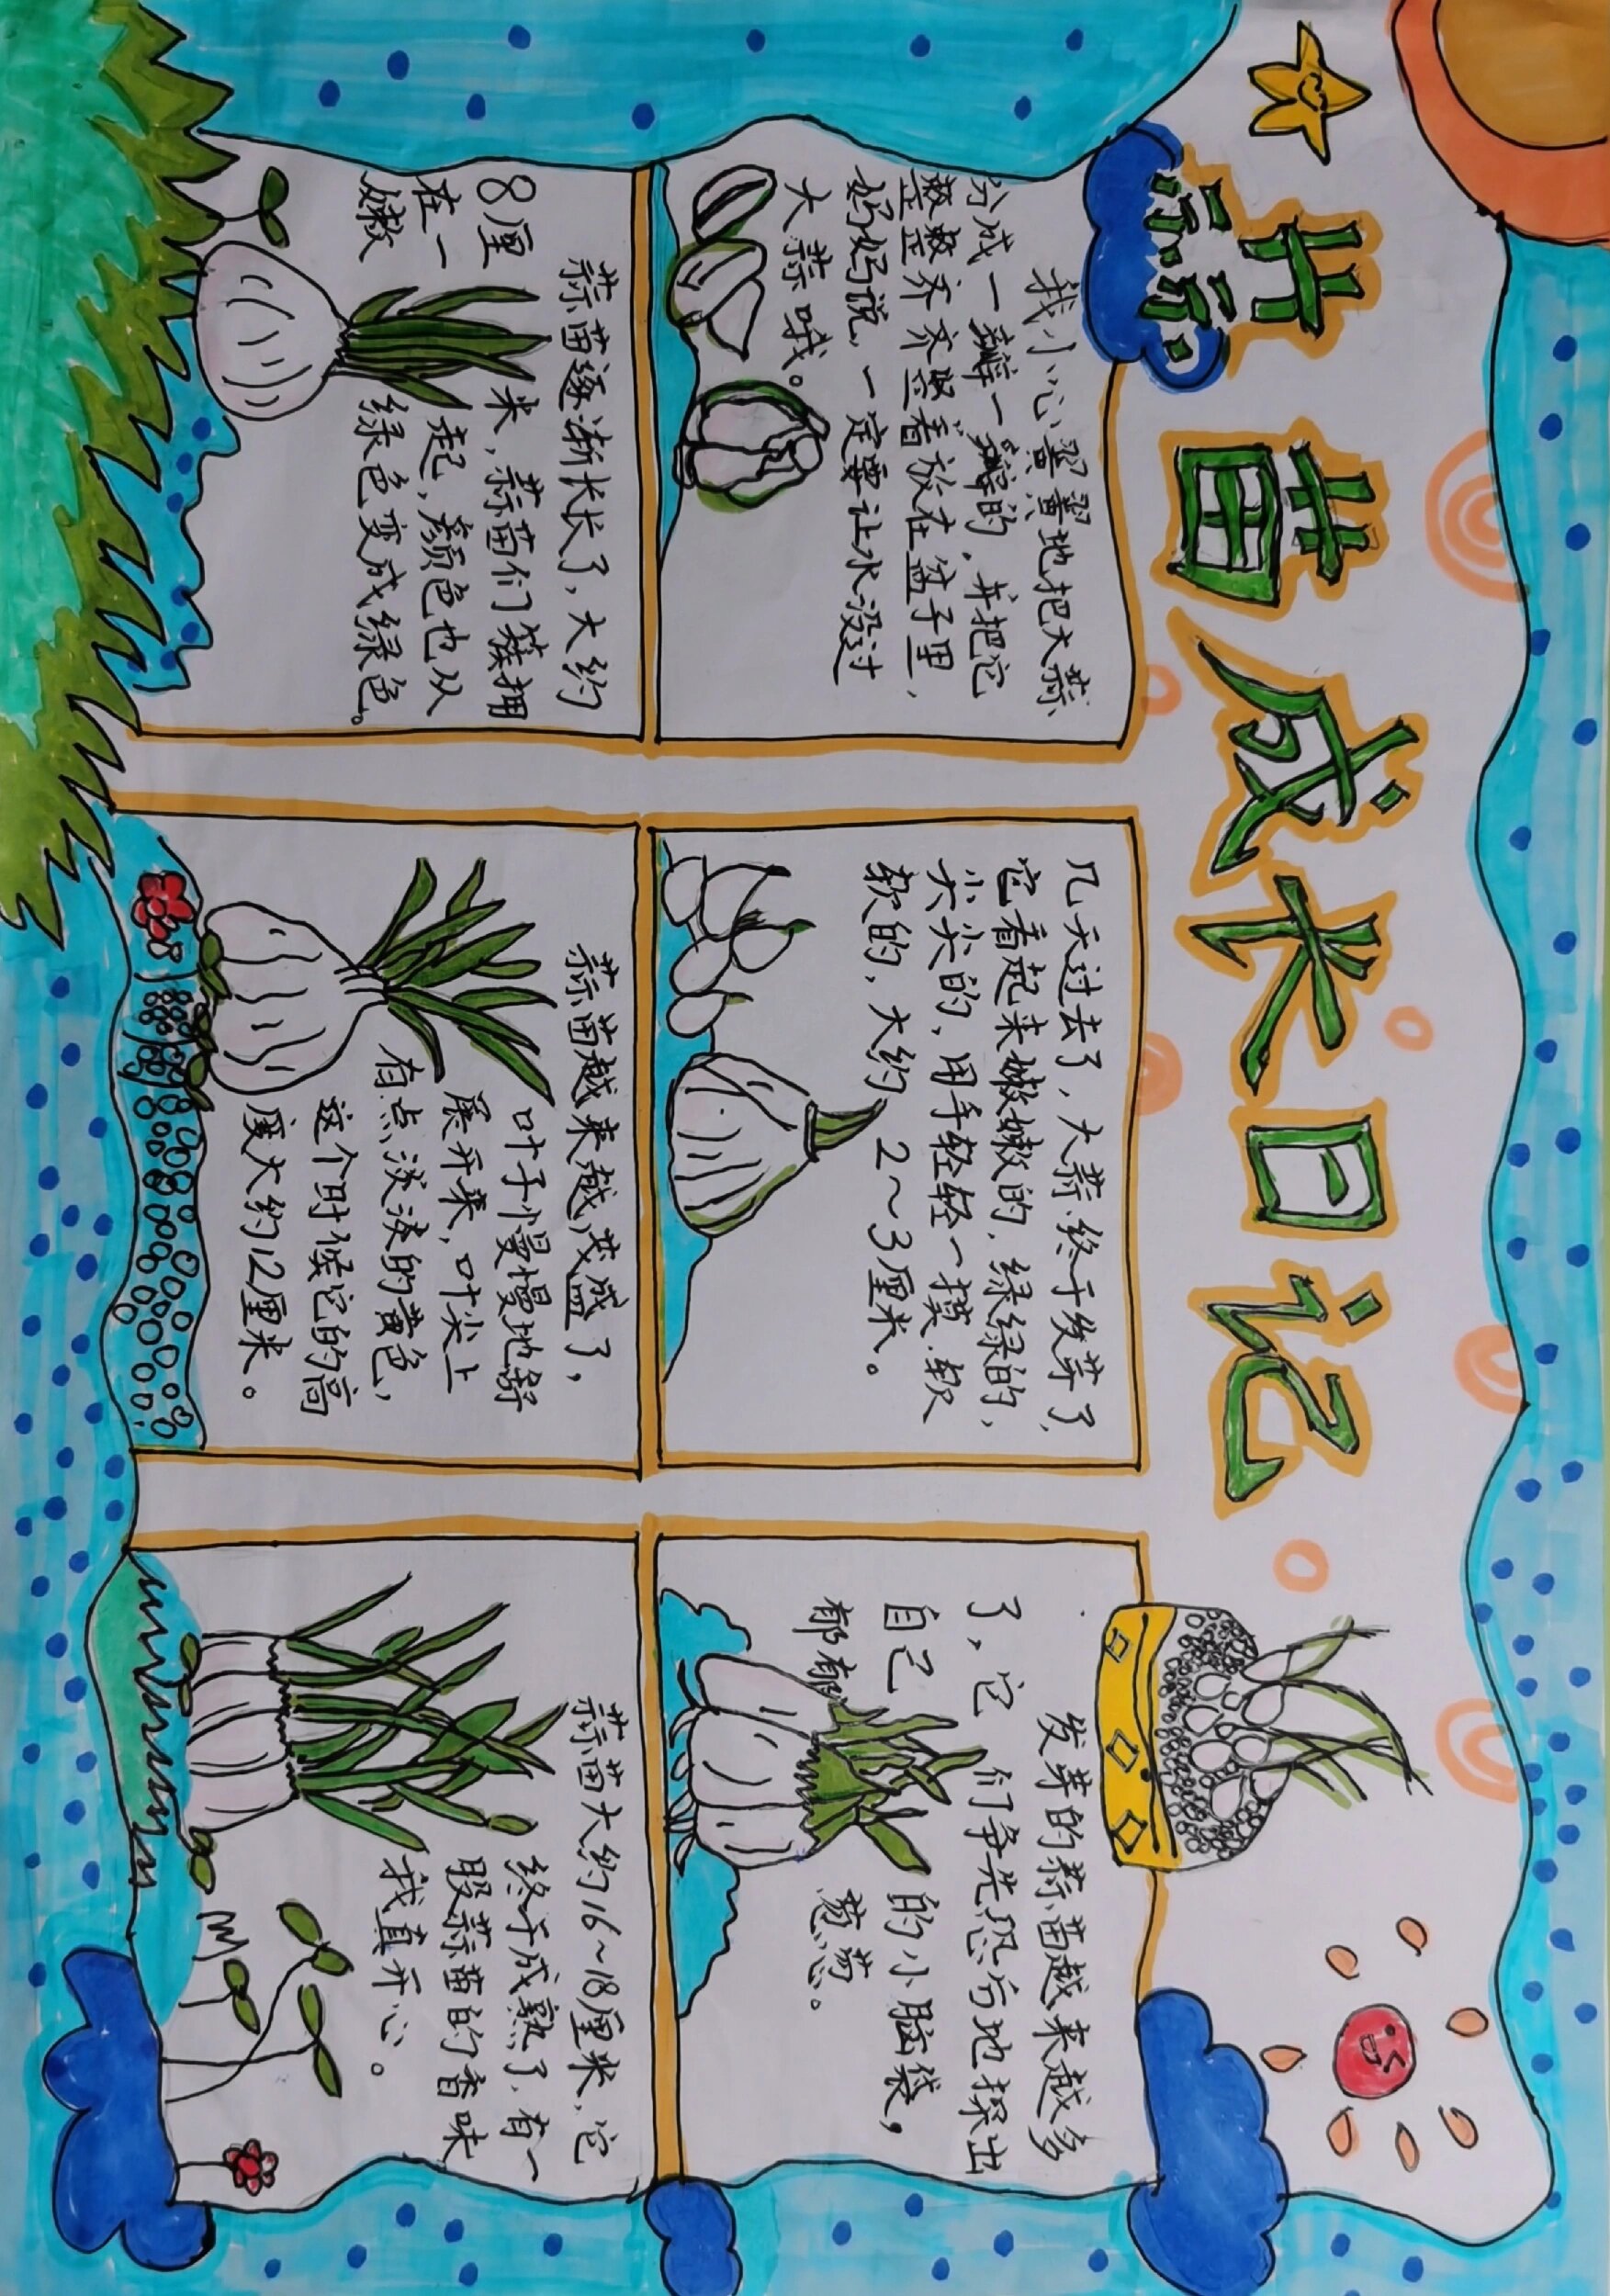 蒜苗成长日记
我小心翼翼地把大蒜
分成一瓣一瓣的，并把它
整整齐齐竖着放在盆子里，
妈妈说，一定要让水没过
大蒜哦。
几天过去了，大蒜终于发芽了，
它看起来嫩嫩的，绿绿的，
尖尖的，用手轻轻一摸，软
软的，大约2～3厘米。
发芽的蒜苗越来越多
了，它们争先恐后地探出
自己的小脑袋，
郁郁葱葱。
蒜苗逐渐长长了，大约
8厘米，蒜苗们簇拥
在一起，颜色也从
嫩绿色变成绿色。
蒜苗越来越茂盛了，
叶子慢慢地舒
展开来，叶尖上
有点淡淡的黄色，
这个时候它的高
度大约12厘米。
蒜苗大约16～18厘米，它
终于成熟了，有一
股蒜苗的香味
我真开心。